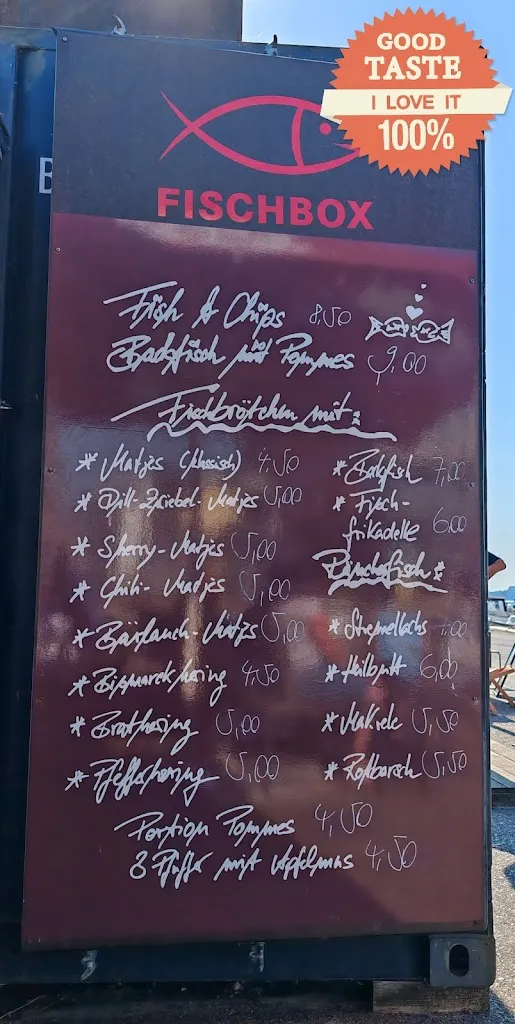 GOOD
TASTE
I LOVE IT
100%
B
FISCHBOX
Fish & Chips 8,50
Backfisch mit Pommes 9,00
Fischbrötchen mit:
* Matjes (klassisch) 4,50
* Dill-Zwiebel-Matjes 5,00
* Sherry-Matjes 5,00
* Chili-Matjes 5,00
* Bärlauch-Matjes 5,00
* Bismarckhering 4,50
* Brathering 5,00
* Pfefferhering 5,00
* Backfisch 7,00
* Fisch-
frikadelle 6,00
Räucherfisch:
* Stremellachs
* Heilbutt 6,00
* Makrele 5,50
* Rotbarsch 5,50
Portion Pommes 4,50
8 Puffer mit Apfelmus 4,50